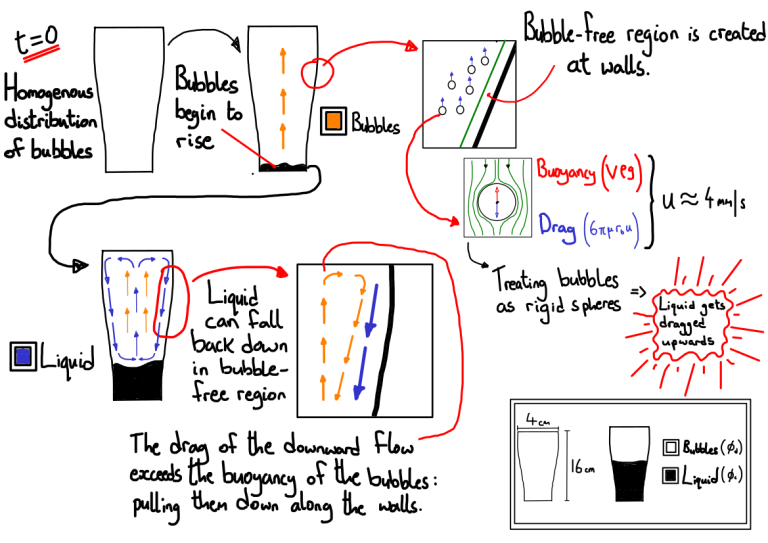 t=0
Homogenous
distribution
of bubbles
Bubbles
begin to
rise
Bubbles
Bubble-free region is created
at walls.
Buoyancy (Vρg)
Drag (6πμr₀u)
u ≈ 4mm/s
Treating bubbles
as rigid spheres =>
Liquid gets
dragged
upwards
Liquid
Liquid
can fall
back down
in bubble-
free region
The drag of the downward flow
exceeds the buoyancy of the bubbles:
pulling them down along the walls.
4cm
16cm
Bubbles (ϕd)
Liquid (ϕc)